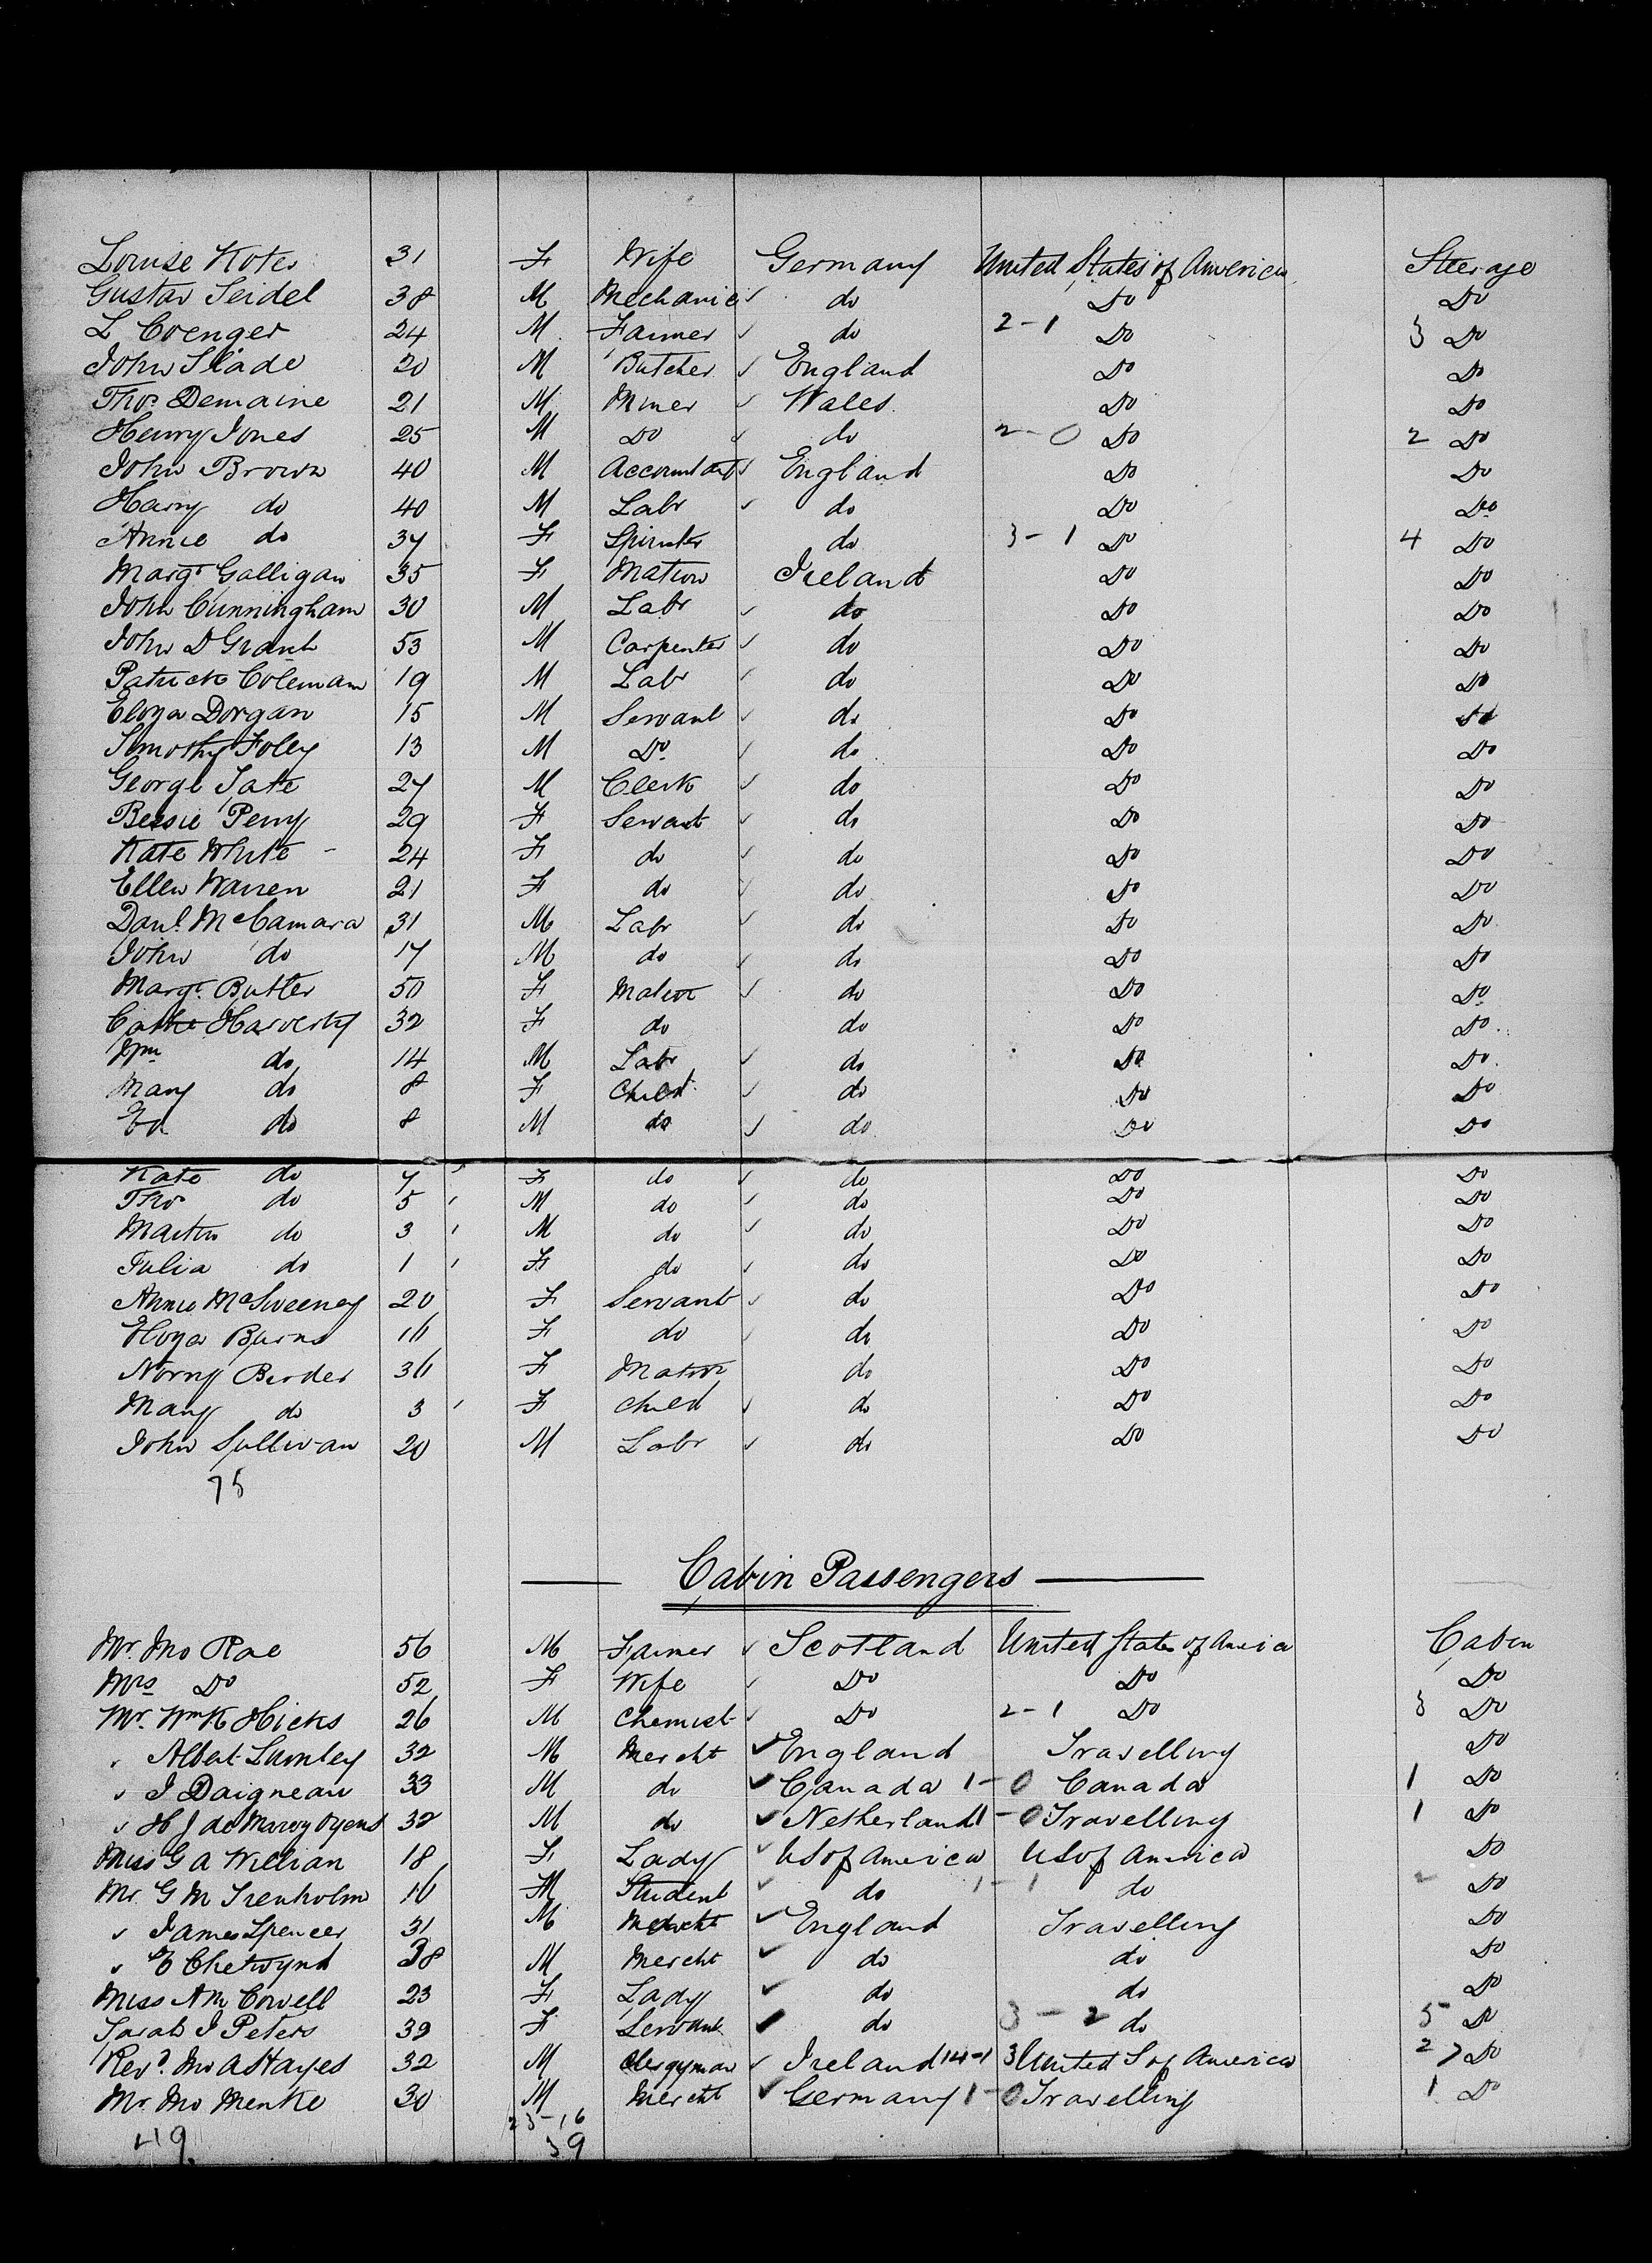 Louise Kotes 31 F Wife Germany United States of America Steerage
Gustav Seidel 38 M Mechanic do Do Do
L Coenger 24 M Farmer do 2-1 Do 3 Do
John Slade 20 M Butcher England Do Do
Thos Demaine 21 M Miner Wales Do Do
Henry Jones 25 M Do do 2-0 Do 2 Do
John Brown 40 M Accountant England Do Do
Harry do 40 M Labr do Do Do
Annie do 37 F Spinster do 3-1 Do 4 Do
Margt Galligan 35 F Matron Ireland Do Do
John Cunningham 30 M Labr do Do Do
John D Grant 53 M Carpenter do Do Do
Patrick Coleman 19 M Labr do Do Do
Eloza Dorgan 15 M Servant do Do Do
Timothy Foley 13 M Do do Do Do
George Tate 27 M Clerk do Do Do
Bessie Perry 29 F Servant do Do Do
Kate White - 24 F do do Do Do
Ellen Warren 21 F do do Do Do
Danl McCamara 31 M Labr do Do Do
John do 17 M do do Do Do
Margt Butler 50 F Matron do Do Do
Cathe Harverty 32 F do do Do Do
Wm do 14 M Labr do Do Do
Mary do 8 F Child do Do Do
Ed do 8 M do do Do Do
Kate do 7 F do do Do Do
Thos do 5 M do do Do Do
Martin do 3 M do do Do Do
Julia do 1 F do do Do Do
Annie McSweeney 20 F Servant do Do Do
Eloza Burns 16 F do do Do Do
Norny Berder 36 F Matron do Do Do
Mary do 3 F Child do Do Do
John Sullivan 20 M Labr do Do Do
75
Cabin Passengers
Mr. Jno Rae 56 M Farmer Scotland United States of America Cabin
Mrs Do 52 F Wife Do Do Do
Mr. Wm K Hicks 26 M Chemist Do 2-1 Do 3 Do
" Albert Lumley 32 M Mercht England Travelling Do
" J Daigneau 33 M do Canada 1-0 Canada 1 Do
" H J de Marez Oyens 32 M do Netherland 1-0 Travelling 1 Do
Miss G A Willian 18 F Lady US of America US of America Do
Mr. G M Trenholm 16 M Student do 1-1 do 2 Do
" James Spencer 31 M Mercht England Travelling Do
" E Chetwynd 38 M Mercht do do Do
Miss A M Cowell 23 F Lady do do Do
Sarah J Peters 39 F Servant do 3-2 do 5 Do
Revd. Jno A Hayes 32 M Clergyman Ireland 14-13 United S of America 27 Do
Mr. Jno Menke 30 M Mercht Germany 1-0 Travelling 1 Do
23-16
49 39